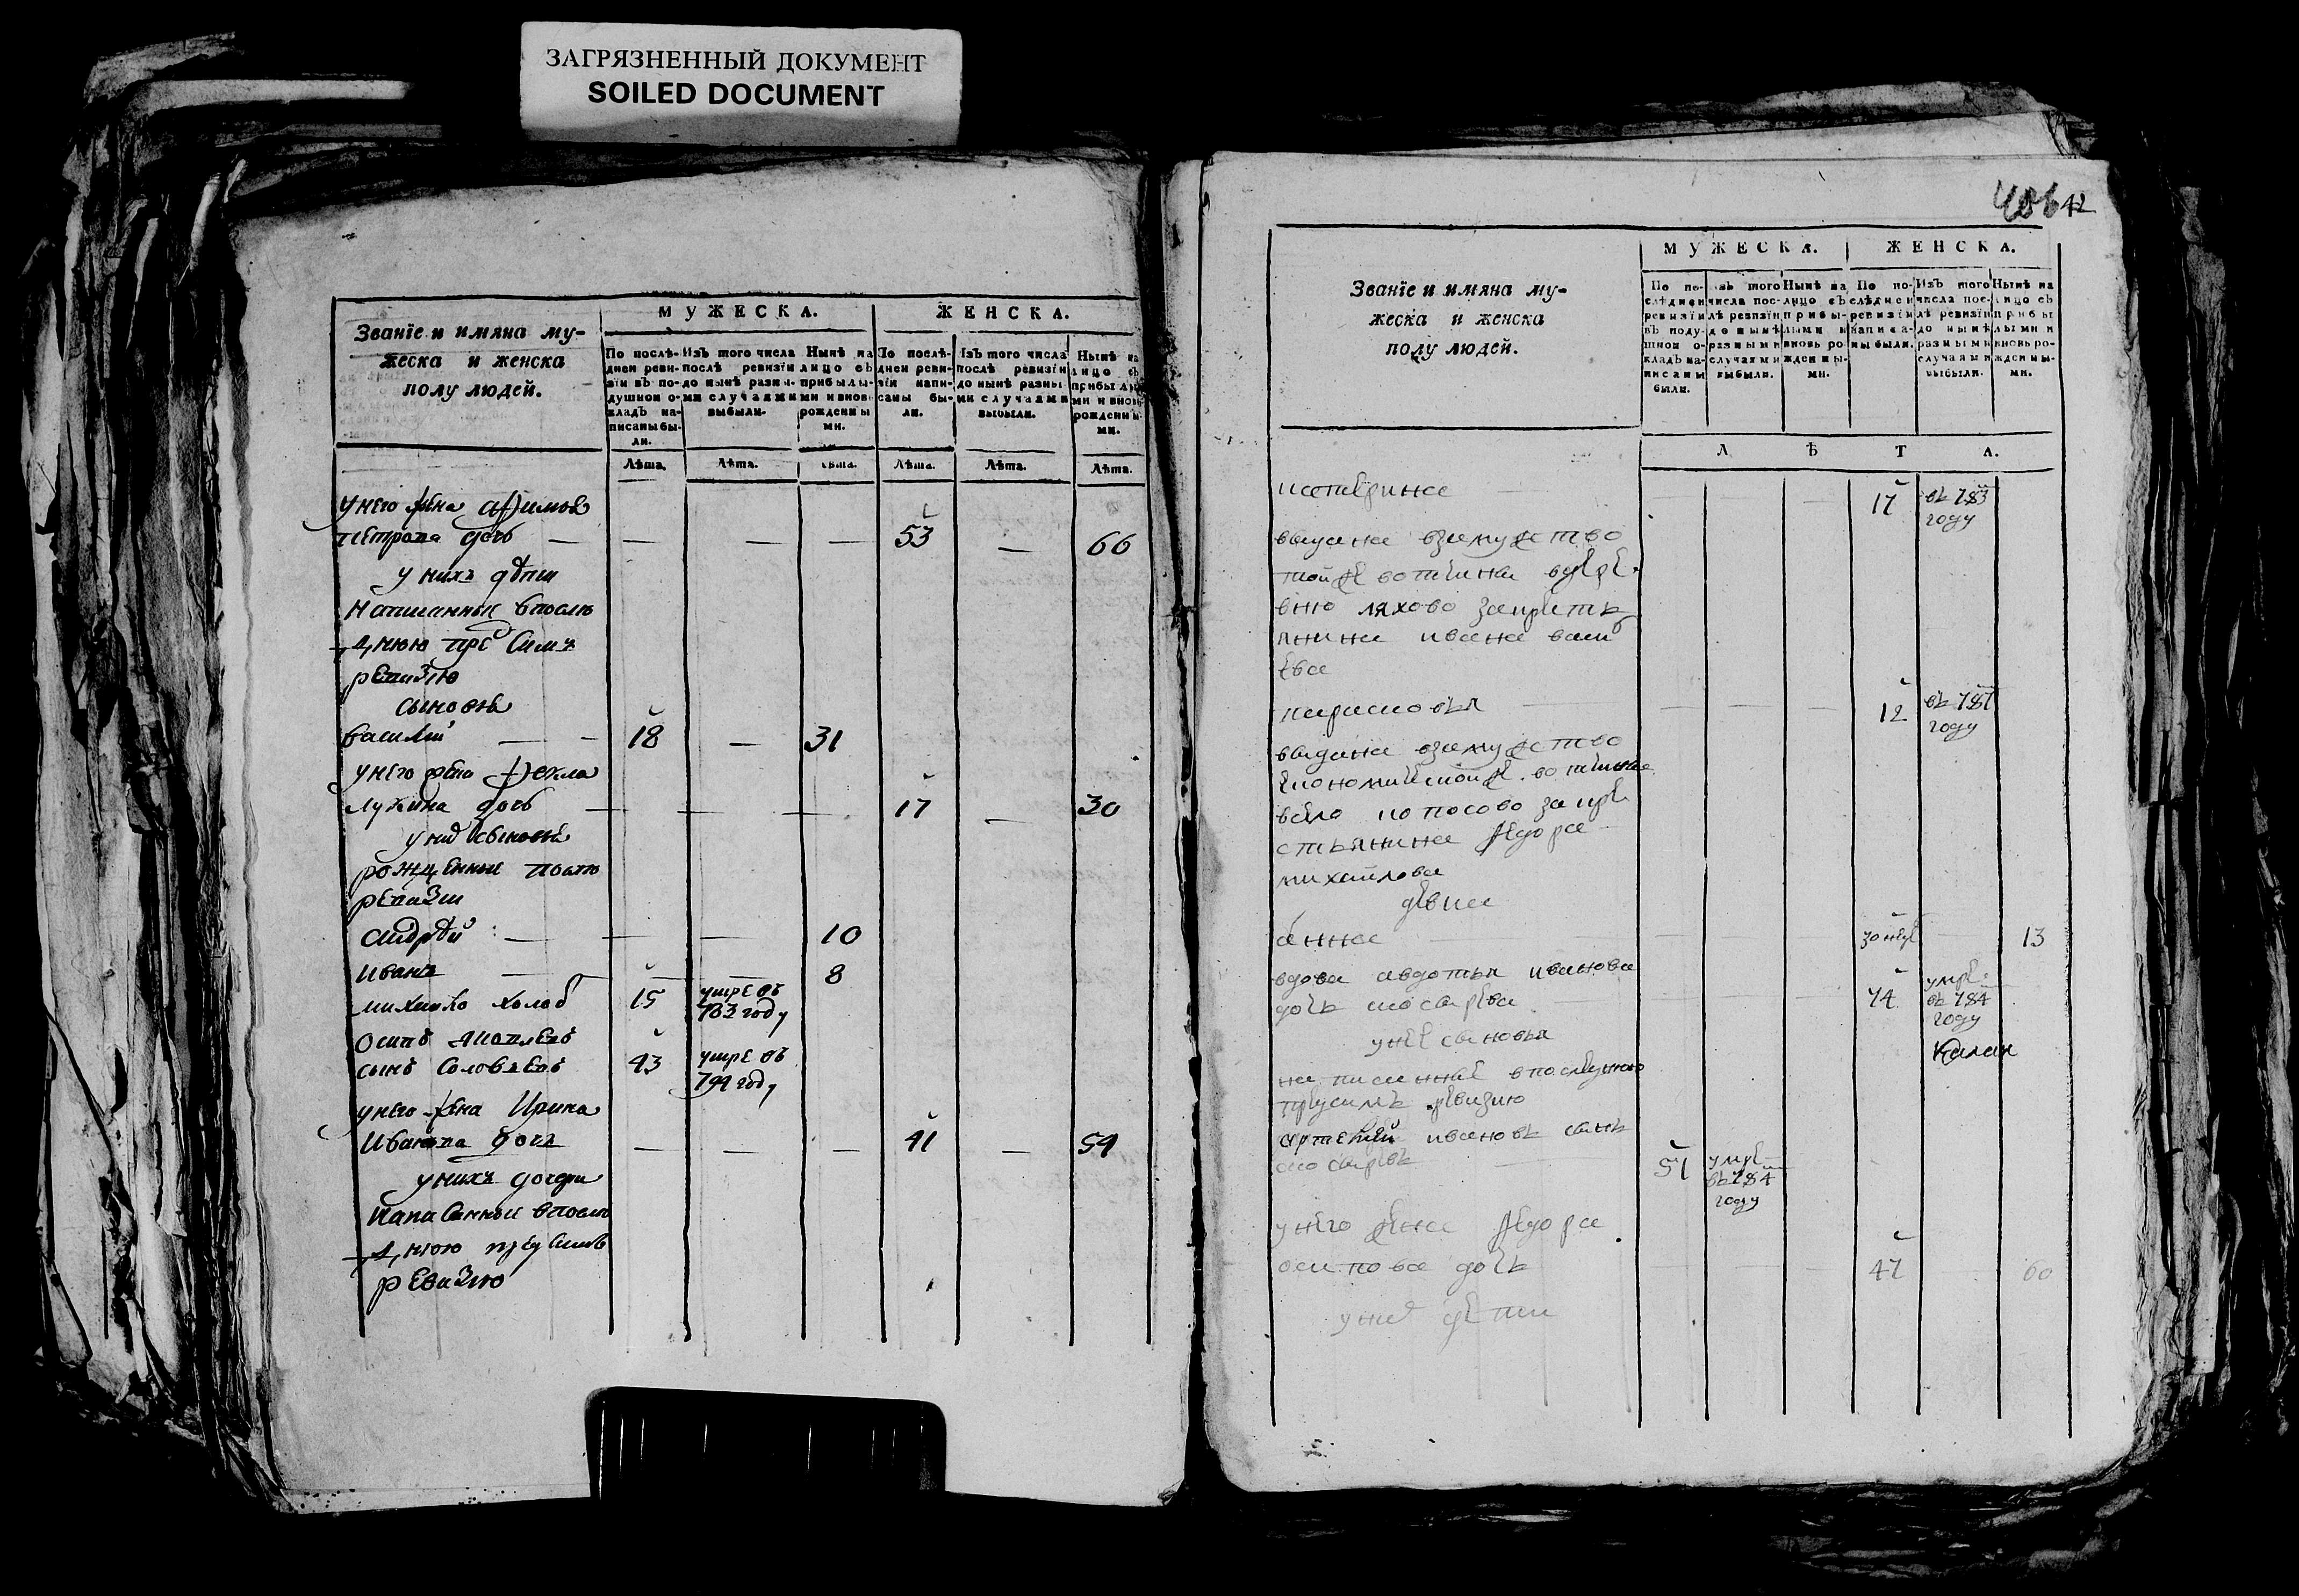 ЗАГРЯЗНЕННЫЙ ДОКУМЕНТ
SOILED DOCUMENT
Званїе и имяна му-
жеска и женска
полу людей.
МУЖЕСКА.
ЖЕНСКА.
По послѣ-
дней реви-
зїи въ по-
душной о-
кладъ на-
писаны бы-
ли.
Изъ того числа
послѣ ревизїи
до нынѣ разны-
ми случаями
выбыли.
Нынѣ на
лицо съ
прибылы-
ми и вновь
рожденны
ми.
По послѣ-
дней реви-
зїи напи-
саны бы-
ли.
Изъ того числа
послѣ ревизїи
до нынѣ разны
ми случаями
выбыли.
Нынѣ на
лицо съ
прибылы
ми и вновь
рожденны-
ми.
Лѣта. Лѣта. Лѣта. Лѣта. Лѣта. Лѣта.
у него жена афимья
петрова дочь — — — — 53 — 66
у нихъ дѣти
написанныя в послѣ
днюю пред симъ
ревизию
сыновья
василий — — 18 — 31
у него жена фекла
лукина дочь — — — — 17 — 30
у них сыновья
рожденные после
ревизии
андрей — — — 10
иванъ — — — 8
михайло холоб 15 умре въ
783 году
осипъ яковлевъ
сынъ соловьевъ 43 умре въ
794 году
у него жена Ирина
Иванова дочь — — — 41 — 54
у нихъ дочери
написанные в послѣ
днюю пред симъ
ревизию
42
Званїе и имяна му-
жеска и женска
полу людей.
МУЖЕСКА.
ЖЕНСКА.
По по-
слѣдней
ревизїи
въ поду-
шной о-
кладъ на-
писаны
были.
Изъ того
числа пос-
лѣ ревизїи
до нынѣ
разными
случаями
выбыли.
Нынѣ на
лицо съ
прибы-
лыми и
вновь ро-
жденны-
ми.
По по-
слѣдней
ревизїи
написа-
ны были.
Изъ того
числа пос-
лѣ ревизїи
до нынѣ
разными
случаями
выбыли.
Нынѣ на
лицо съ
прибы
лыми и
вновь ро-
жденны-
ми.
ЛѢТА.
катерина — — — 17 въ 783
году
выдана взамужство
той же вотчины в дере
вню ляхово за кресть
янина ивана васил
ева
парасковья — — — 12 въ 787
году
выдана взамужство
економической вотчины
в село за кре
стьянина федора
михайлова
девка
анна — — 13
вдова авдотья иванова
дочь — — — 74 умре
въ 784
году
у неё сыновья
написанные в последнюю
пред симъ ревизию
артемий ивановъ сынъ
51 умре
въ 784
году
у него жена федора
осипова дочь — — — 47 — 60
у них дети